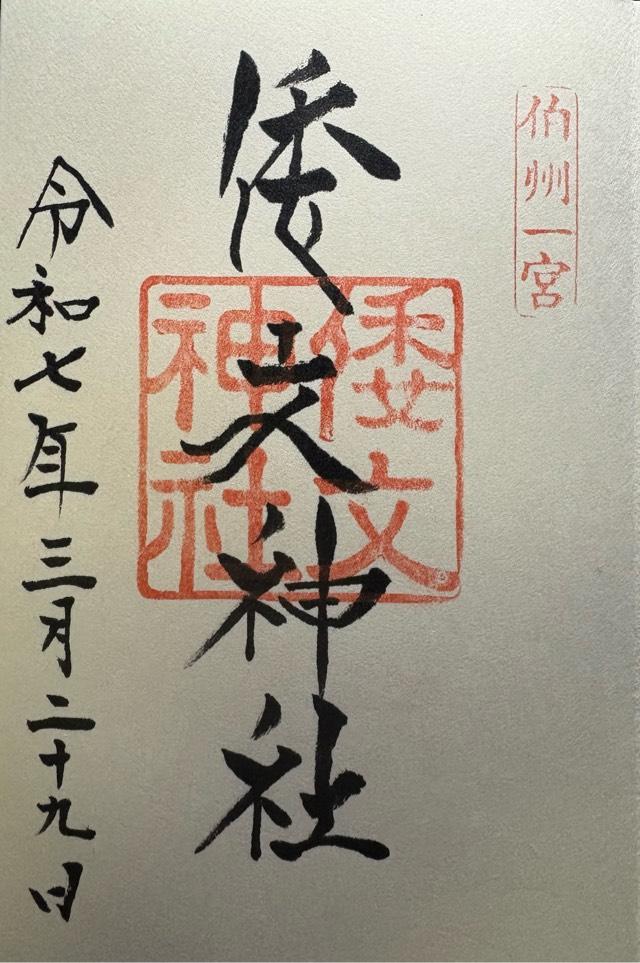 伯州一宮
倭文神社
倭文
神社
令和七年三月二十九日